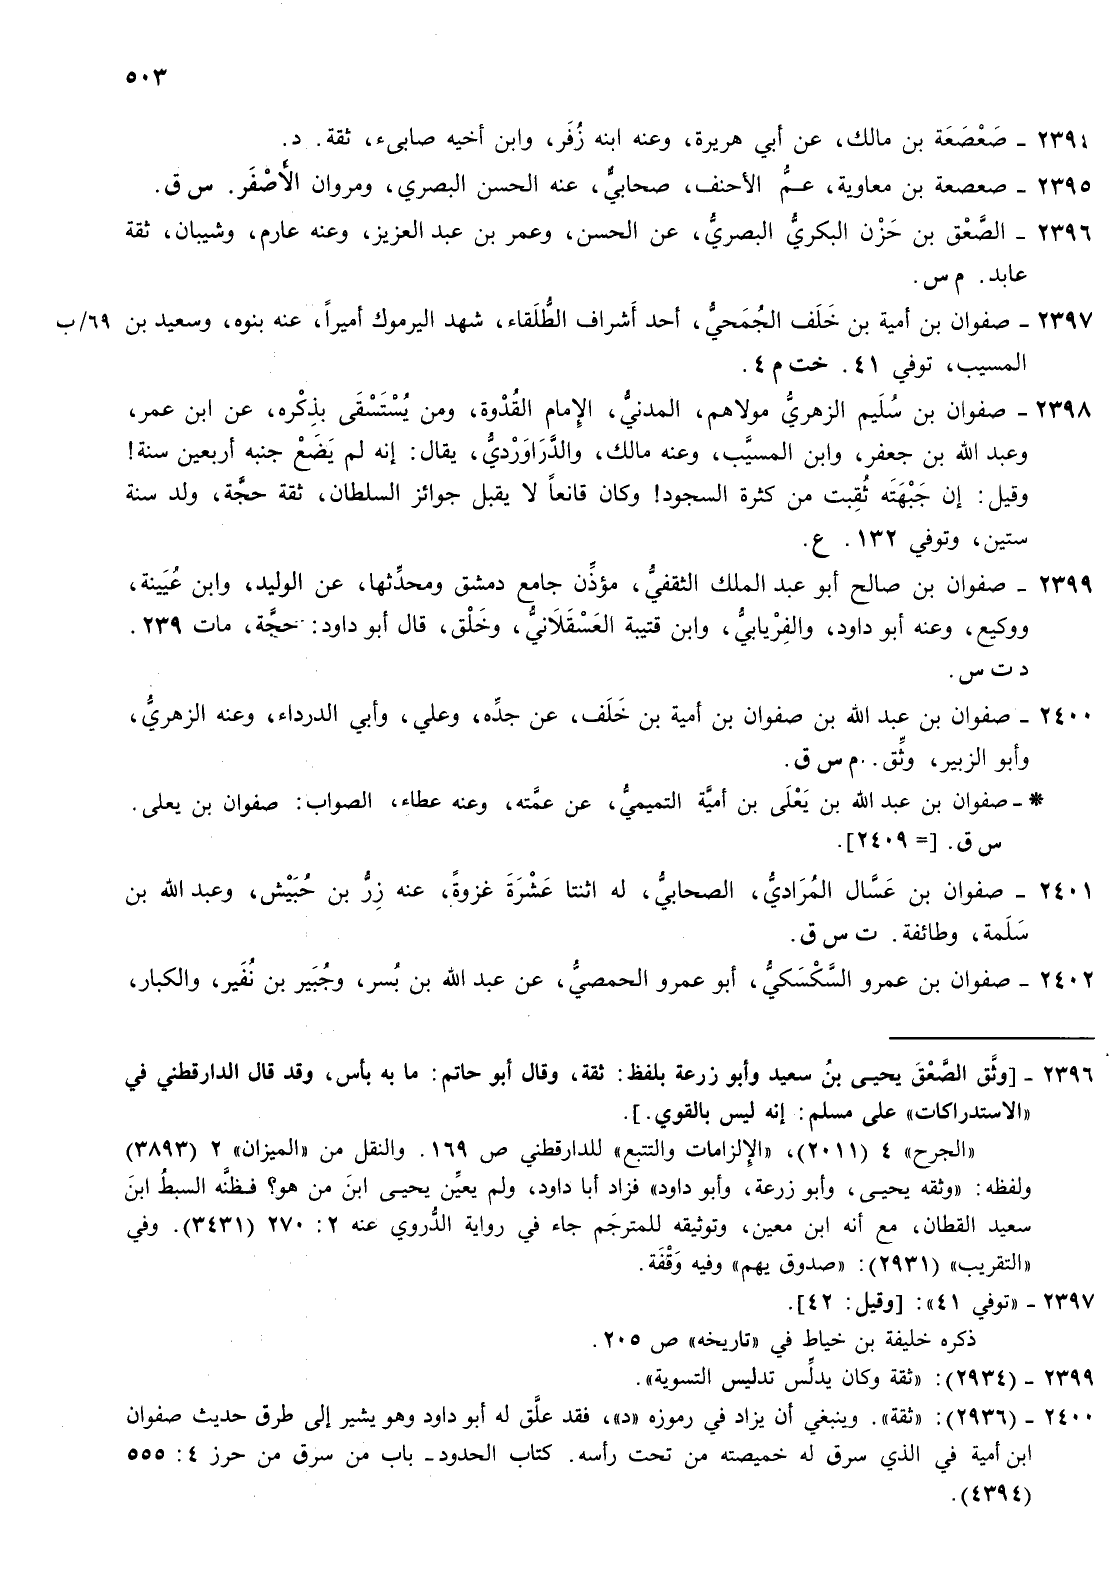 ٥٠٣
٢٣٩٤ ـ صَعْصَعَة بن مالك، عن أبي هريرة، وعنه ابنه زُفَر، وابن أخيه صابىء، ثقة. د.
٢٣٩٥ ـ صعصعة بن معاوية، عمُّ الأحنف، صحابيٌّ، عنه الحسن البصري، ومروان الأَصْفَر. س ق.
٢٣٩٦ ـ الصَّعْق بن حَزْن البكريُّ البصريُّ، عن الحسن، وعمر بن عبد العزيز، وعنه عارم، وشيبان، ثقة
عابد. م س.
٢٣٩٧ ـ صفوان بن أمية بن خَلَف الجُمَحيُّ، أحد أَشراف الطُّلَقاء، شهد اليرموك أميراً، عنه بنوه، وسعيد بن ٦٩/ب
المسيب، توفي ٤١. خت م ٤.
٢٣٩٨ ـ صفوان بن سُلَيم الزهريُّ مولاهم، المدنيُّ، الإمام القُدْوة، ومن يُسْتَسْقَى بذِكْره، عن ابن عمر،
وعبد الله بن جعفر، وابن المسيَّب، وعنه مالك، والدَّرَاوَرْديُّ، يقال: إنه لم يَضَعْ جنبه أربعين سنة!
وقيل: إن جَبْهَتَه ثُقِبت من كثرة السجود! وكان قانعاً لا يقبل جوائز السلطان، ثقة حجَّة، ولد سنة
ستين، وتوفي ١٣٢. ع.
٢٣٩٩ ـ صفوان بن صالح أبو عبد الملك الثقفيُّ، مؤذِّن جامع دمشق ومحدِّثها، عن الوليد، وابن عُيَينة،
ووكيع، وعنه أبو داود، والفِرْيابيُّ، وابن قتيبة العَسْقَلَانيُّ، وخَلْق، قال أبو داود: حجَّة، مات ٢٣٩.
د ت س.
٢٤٠٠ ـ صفوان بن عبد الله بن صفوان بن أمية بن خَلَف، عن جدِّه، وعلي، وأبي الدرداء، وعنه الزهريُّ،
وأبو الزبير، وثِّق. م س ق.
* ـ صفوان بن عبد الله بن يَعْلَى بن أميَّة التميميُّ، عن عمَّته، وعنه عطاء، الصواب: صفوان بن يعلى.
س ق. [= ٢٤٠٩].
٢٤٠١ ـ صفوان بن عَسَّال المُرَاديُّ، الصحابيُّ، له اثنتا عَشْرَةَ غزوةً، عنه زِرُّ بن حُبَيْش، وعبد الله بن
سَلَمة، وطائفة. ت س ق.
٢٤٠٢ ـ صفوان بن عمرو السَّكْسَكيُّ، أبو عمرو الحمصيُّ، عن عبد الله بن بُسر، وجُبَير بن نُفَير، والكبار،
٢٣٩٦ ـ [وثَّق الصَّعْقَ يحيى بنُ سعيد وأبو زرعة بلفظ: ثقة، وقال أبو حاتم: ما به بأس، وقد قال الدارقطني في
«الاستدراكات» على مسلم: إنه ليس بالقوي.].
«الجرح» ٤ (٢٠١١)، «الإلزامات والتتبع» للدارقطني ص ١٦٩. والنقل من «الميزان» ٢ (٣٨٩٣)
ولفظه: «وثقه يحيى، وأبو زرعة، وأبو داود» فزاد أبا داود، ولم يعيِّن يحيى ابنَ من هو؟ فظنَّه السبطُ ابنَ
سعيد القطان، مع أنه ابن معين، وتوثيقه للمترجَم جاء في رواية الدُّروي عنه ٢: ٢٧٠ (٣٤٣١). وفي
«التقريب» (٢٩٣١): «صدوق يهم» وفيه وَقْفَة.
٢٣٩٧ ـ «توفي ٤١»: [وقيل: ٤٢].
ذكره خليفة بن خياط في «تاريخه» ص ٢٠٥.
٢٣٩٩ ـ (٢٩٣٤): «ثقة وكان يدلِّس تدليس التسوية».
٢٤٠٠ ـ (٢٩٣٦): «ثقة». وينبغي أن يزاد في رموزه «د»، فقد علَّق له أبو داود وهو يشير إلى طرق حديث صفوان
ابن أمية في الذي سرق له خميصته من تحت رأسه. كتاب الحدود ـ باب من سرق من حرز ٤: ٥٥٥
(٤٣٩٤).